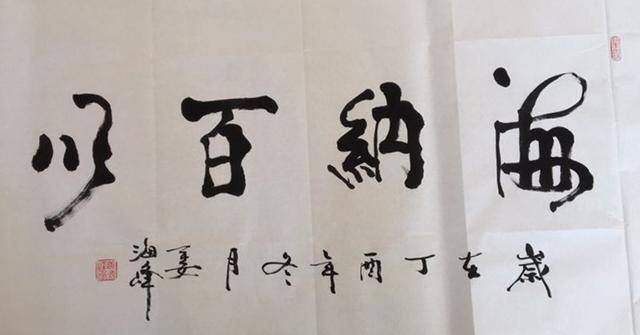 海纳百川
歲在丁酉年冬月姜海峰